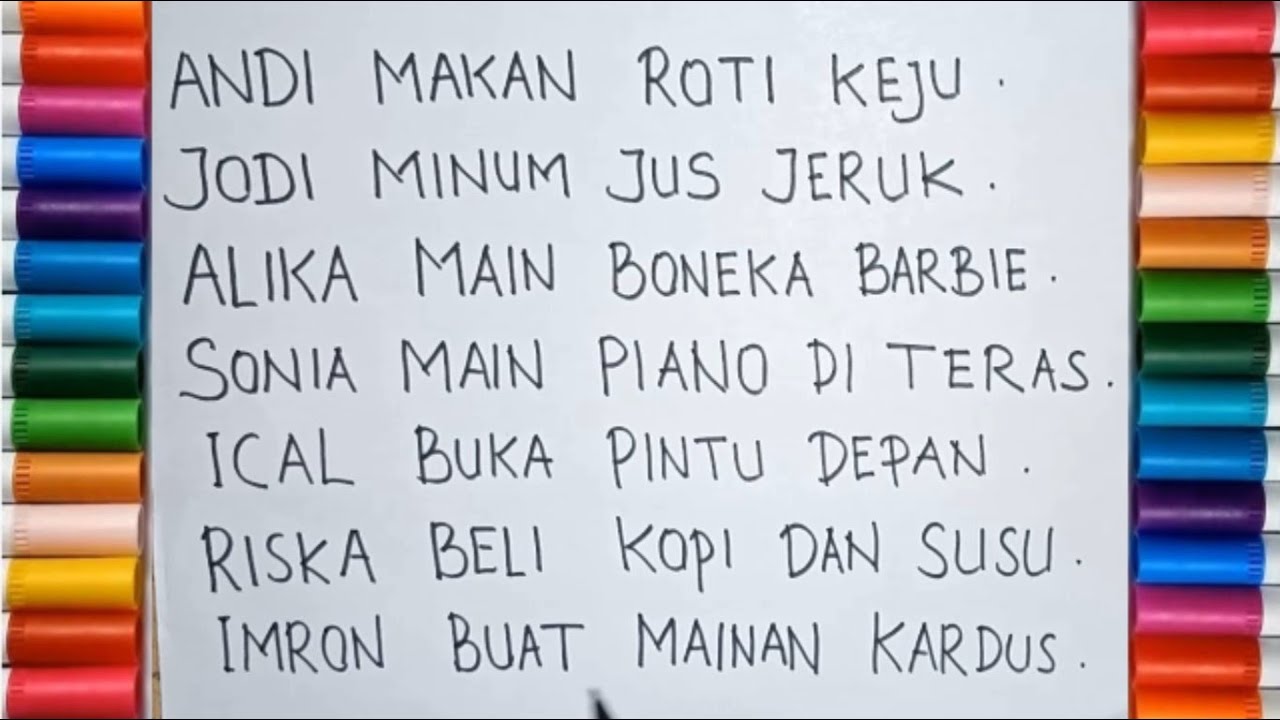 ANDI MAKAN ROTI KEJU.
JODI MINUM JUS JERUK.
ALIKA MAIN BONEKA BARBIE.
SONIA MAIN PIANO DI TERAS.
ICAL BUKA PINTU DEPAN.
RISKA BELI KOPI DAN SUSU.
IMRON BUAT MAINAN KARDUS.